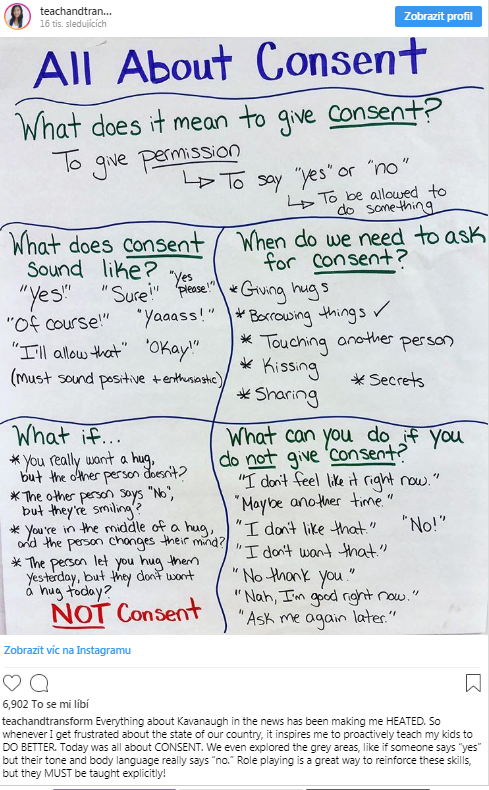 teachandtran...
16 tis. sledujících
Zobrazit profil
All About Consent
What does it mean to give consent?
To give permission
↳ To say "yes" or "no"
↳ To be allowed to
do something
What does consent
sound like?
"Yes!" "Sure!" "Yes please!"
"Of course!" "Yaaass!"
"I'll allow that" "Okay!"
(Must sound positive + enthusiastic)
When do we need to ask
for consent?
* Giving hugs
* Borrowing things ✓
* Touching another person
* Kissing
* Sharing * Secrets
What if...
* You really want a hug,
but the other person doesn't?
* The other person says "No",
but they're smiling?
* You're in the middle of a hug,
and the person changes their mind?
* The person let you hug them
yesterday, but they don't want
a hug today?
NOT Consent
What can you do if you
do not give consent?
"I don't feel like it right now."
"Maybe another time."
"I don't like that." "No!"
"I don't want that."
"No thank you."
"Nah, I'm good right now."
"Ask me again later."
Zobrazit víc na Instagramu
6,902 To se mi líbí
teachandtransform Everything about Kavanaugh in the news has been making me HEATED. So
whenever I get frustrated about the state of our country, it inspires me to proactively teach my kids to
DO BETTER. Today was all about CONSENT. We even explored the grey areas, like if someone says "yes"
but their tone and body language really says "no." Role playing is a great way to reinforce these skills,
but they MUST be taught explicitly!